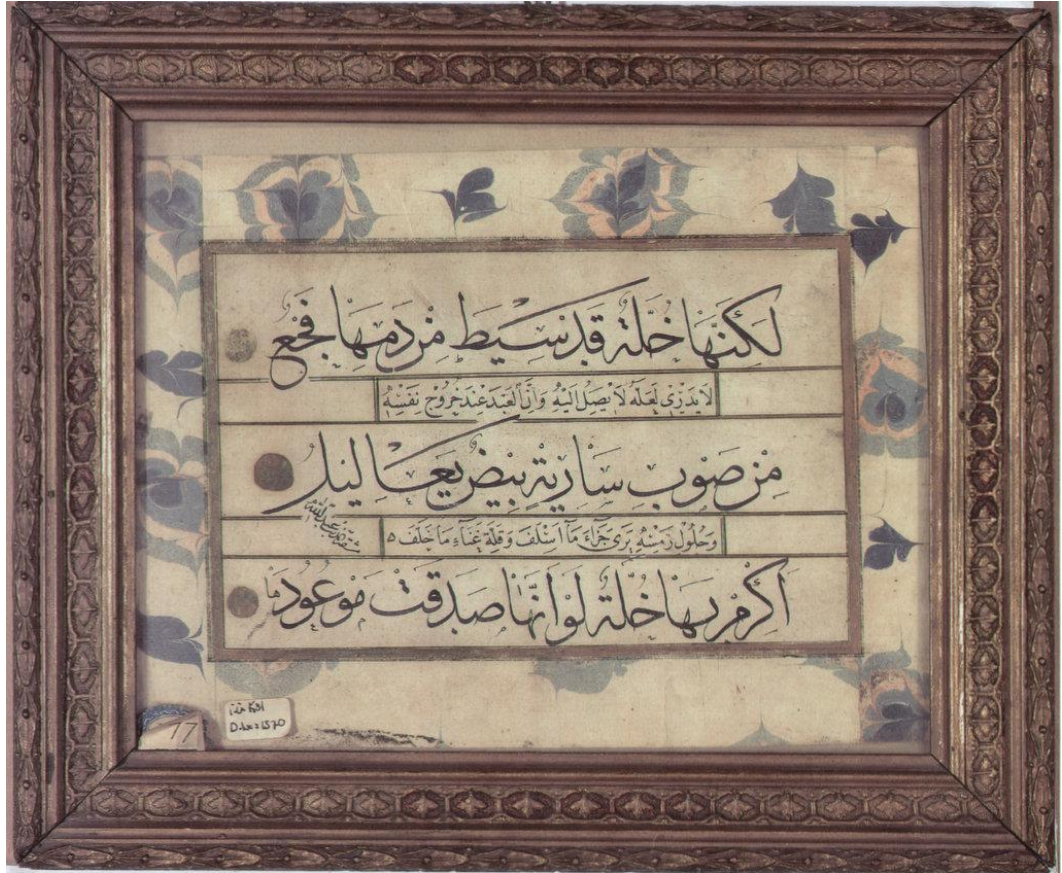 لَكِنَّهَا خُلَّةٌ قَدْ سِيطَ مِنْ دَمِهَا فَجْعٌ
لَا يَدْرِى لَعَلَّهُ لَا يَصِلُ اِلَيْهِ وَاِنَّ الْعَبْدَ عِنْدَ خُرُوجِ نَفْسِهِ
مِنْ صَوْبِ سَارِيَةٍ بِيضٌ يَعَالِيلُ
وَحُلُولِ رَمْسِهِ يَرَى جَزَاءَ مَا اَسْلَفَ وَقِلَّةَ غَنَاءِ مَا خَلَفَ ٥
اَكْرِمْ بِهَا خُلَّةً لَوْ اَنَّهَا صَدَقَتْ مَوْعُودَهَا
17